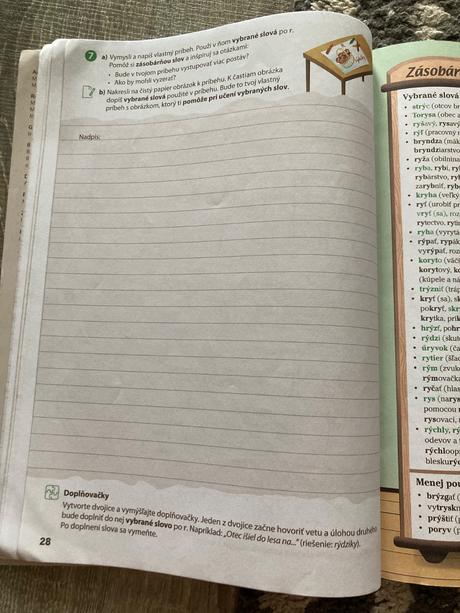 7 a) Vymysli a napíš vlastný príbeh. Použi v ňom vybrané slová po r.
Pomôž si zásobárňou slov a inšpiruj sa otázkami:
• Bude v tvojom príbehu vystupovať viac postáv?
• Ako by mohli vyzerať?
b) Nakresli na čistý papier obrázok k príbehu. K častiam obrázka
dopíš vybrané slová použité v príbehu. Bude to tvoj vlastný
príbeh s obrázkom, ktorý ti pomôže pri učení vybraných slov.
Nadpis:
Doplňovačky
Vytvorte dvojice a vymýšľajte doplňovačky. Jeden z dvojice začne hovoriť vetu a úlohou druhého
bude doplniť do nej vybrané slovo po r. Napríklad: „Otec išiel do lesa na...“ (riešenie: rýdziky).
Po doplnení slova sa vymeňte.
28
Zásobár
Vybrané slová
• strýc (otcov br
Torysa (obec a
• ryšavý, rysav
• rýľ (pracovný n
• bryndza (mäk
bryndziarstvo
• ryža (obilnina
• ryba, rybí, ryb
rybárstvo, ryb
zarybniť, rybo
• kryha (veľký
• ryť (urobiť pr
vryť (sa), roz
rytectvo, rytin
• ryha (vyrytá
• rýpať, rypák
vyrýpať, roz
• koryto (väčš
korytový, ko
(kúpele a ná
• trýzniť (tráp
• kryť (sa), sk
pokryť, skr
krytka, prík
• hrýzť, pohr
• rýdzi (skut
• úryvok (ča
• rytier (šľac
• rým (zvuko
rýmovačka
• ryčať (hlas
• rys (narys
pomocou
rysovací,
• rýchly, rý
odevov a
rýchloop
bleskurýc
Menej pou
• brýzgať (
• vytryskn
• prýštiť (p
• poryv (p